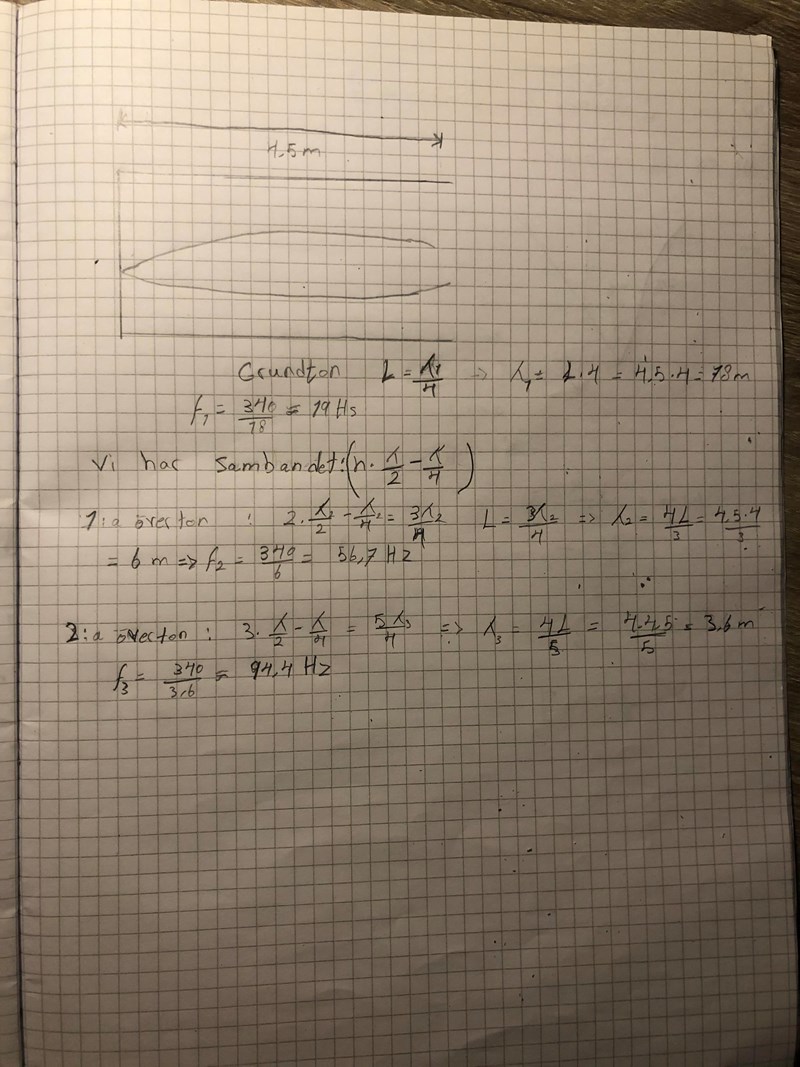 4,5 m
Grundton L = λ₁/4 => λ₁ = L·4 = 4,5·4 = 18 m
f₁ = 340/18 = 19 Hs
Vi har sambandet: (n· λ/2 − λ/4)
1:a överton : 2·λ₂/2 − λ₂/4 = 3λ₂/4 L = 3λ₂/4 => λ₂ = 4L/3 = 4,5·4/3
= 6 m => f₂ = 340/6 = 56,7 Hz
2:a överton : 3· λ/2 − λ/4 = 5λ₃/4 => λ₃ = 4L/5 = 4·4,5/5 = 3,6 m
f₃ = 340/3,6 = 94,4 Hz